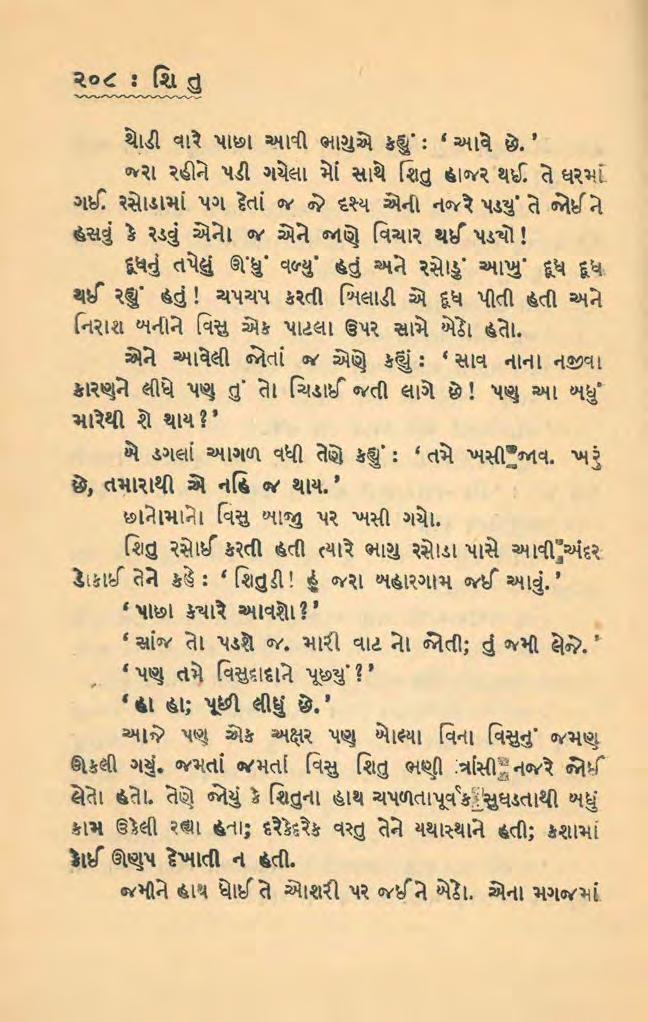 ૨૦૮ : શિ તુ
થોડી વારે પાછા આવી ભાગુએ કહ્યું : ‘ આવે છે. ’
જરા રહીને પડી ગયેલા મોં સાથે શિતુ હાજર થઈ. તે ઘરમાં
ગઈ. રસોડામાં પગ દેતાં જ જે દૃશ્ય એની નજરે પડ્યું તે જોઈને
હસવું કે રડવું એનો જ એને જાણે વિચાર થઈ પડ્યો !
દૂધનું તપેલું ઊંધું વળ્યું હતું અને રસોડું આખું દૂધ દૂધ
થઈ રહ્યું હતું ! ચપચપ કરતી બિલાડી એ દૂધ પીતી હતી અને
નિરાશ બનીને વિસુ એક પાટલા ઉપર સામે બેઠો હતો.
એને આવેલી જોતાં જ એણે કહ્યું : ‘ સાવ નાના નજીવા
કારણને લીધે પણ તું તો ચિડાઈ જતી લાગે છે ! પણ આ બધું
મારેથી શે થાય ? ’
બે ડગલાં આગળ વધી તેણે કહ્યું : ‘ તમે ખસી જાવ. ખરું
છે, તમારાથી એ નહિ જ થાય. ’
છાનોમાનો વિસુ બાજુ પર ખસી ગયો.
શિતુ રસોઈ કરતી હતી ત્યારે ભાગુ રસોડા પાસે આવી અંદર
ડોકાઈ તેને કહે : ‘ શિતુડી ! હું જરા બહારગામ જઈ આવું. ’
‘ પાછા ક્યારે આવશો ? ’
‘ સાંજ તો પડશે જ. મારી વાટ નો જોતી; તું જમી લેજે. ’
‘ પણ તમે વિસુદાદાને પૂછ્યું ? ’
‘ હા હા; પૂછી લીધું છે. ’
આજે પણ એક અક્ષર પણ બોલ્યા વિના વિસુનું જમણ
ઊકલી ગયું. જમતાં જમતાં વિસુ શિતુ ભણી ત્રાંસી નજરે જોઈ
લેતો હતો. તેણે જોયું કે શિતુના હાથ ચપળતાપૂર્વક સુઘડતાથી બધું
કામ ઉકેલી રહ્યા હતા; દરેકેદરેક વસ્તુ તેને યથાસ્થાને હતી; કશામાં
કોઈ ઊણપ દેખાતી ન હતી.
જમીને હાથ ધોઈ તે ઓશરી પર જઈને બેઠો. એના મગજમાં